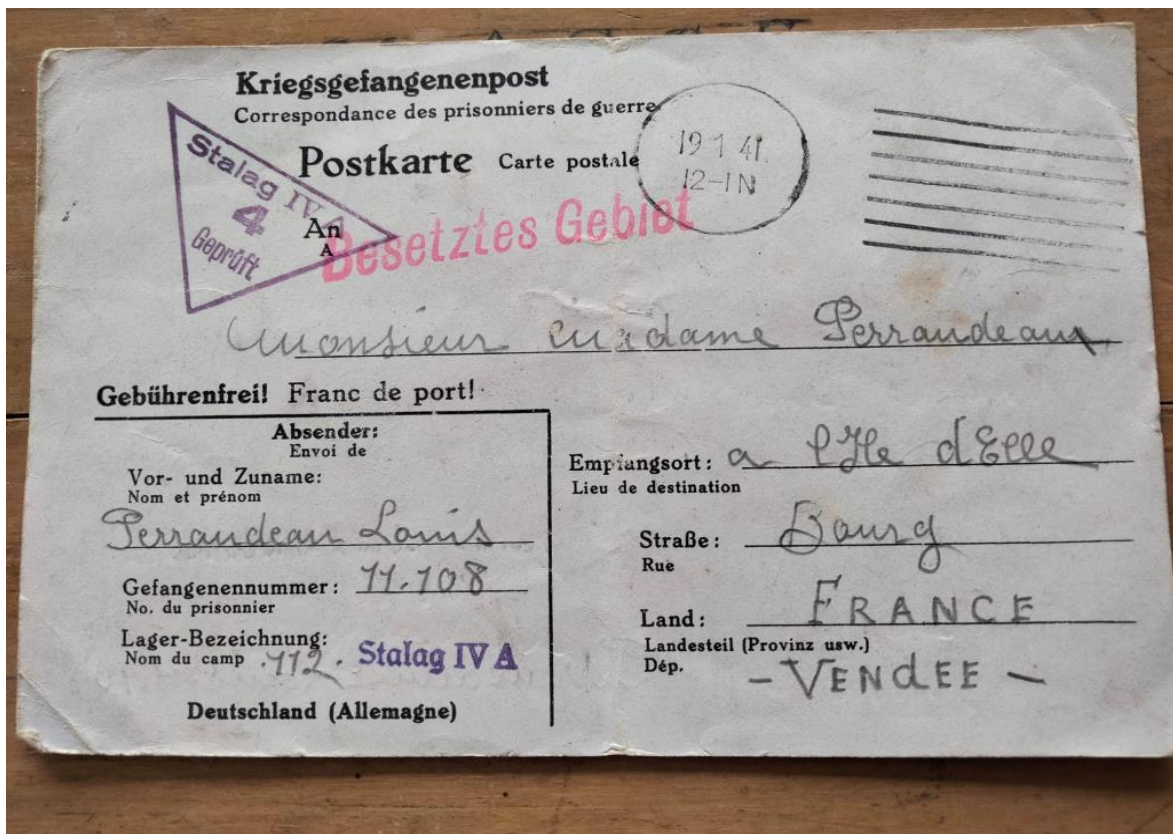 Kriegsgefangenenpost
Correspondance des prisonniers de guerre
Postkarte Carte postale
19 1 41.
12-1N
Stalag IV A
4
Geprüft
An
A
Besetztes Gebiet
Monsieur Madame Perraudeau
Gebührenfrei! Franc de port!
Absender:
Envoi de
Vor- und Zuname:
Nom et prénom
Perraudeau Louis
Gefangenennummer: 11.108
No. du prisonnier
Lager-Bezeichnung:
Nom du camp .112. Stalag IV A
Deutschland (Allemagne)
Empfangsort: a l'Ile d'Elle
Lieu de destination
Straße: Bourg
Rue
Land: FRANCE
Landesteil (Provinz usw.)
Dép. - VENdEE -